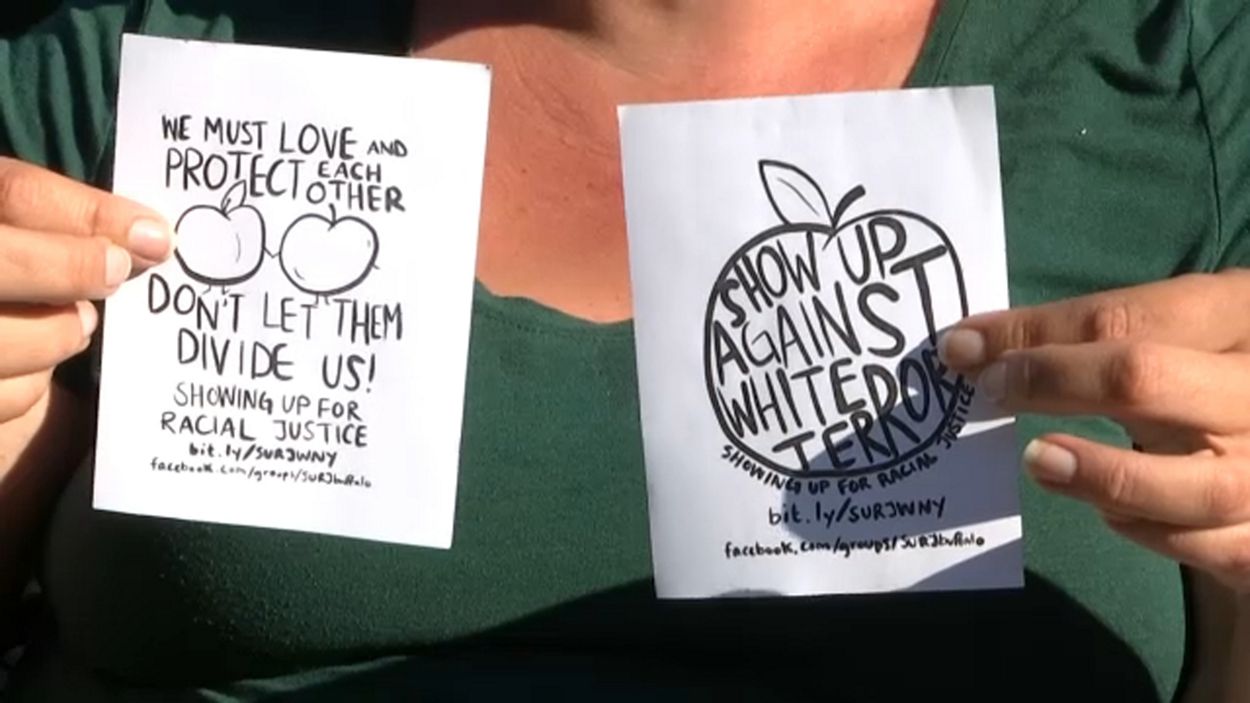 WE MUST LOVE AND
PROTECT EACH
OTHER
DON'T LET THEM
DIVIDE US!
SHOWING UP FOR
RACIAL JUSTICE
bit.ly/SURJWNY
facebook.com/groups/SURJbuffalo
SHOW UP
AGAINST
WHITE
TERROR
SHOWING UP FOR RACIAL JUSTICE
bit.ly/SURJWNY
facebook.com/groups/SURJbuffalo